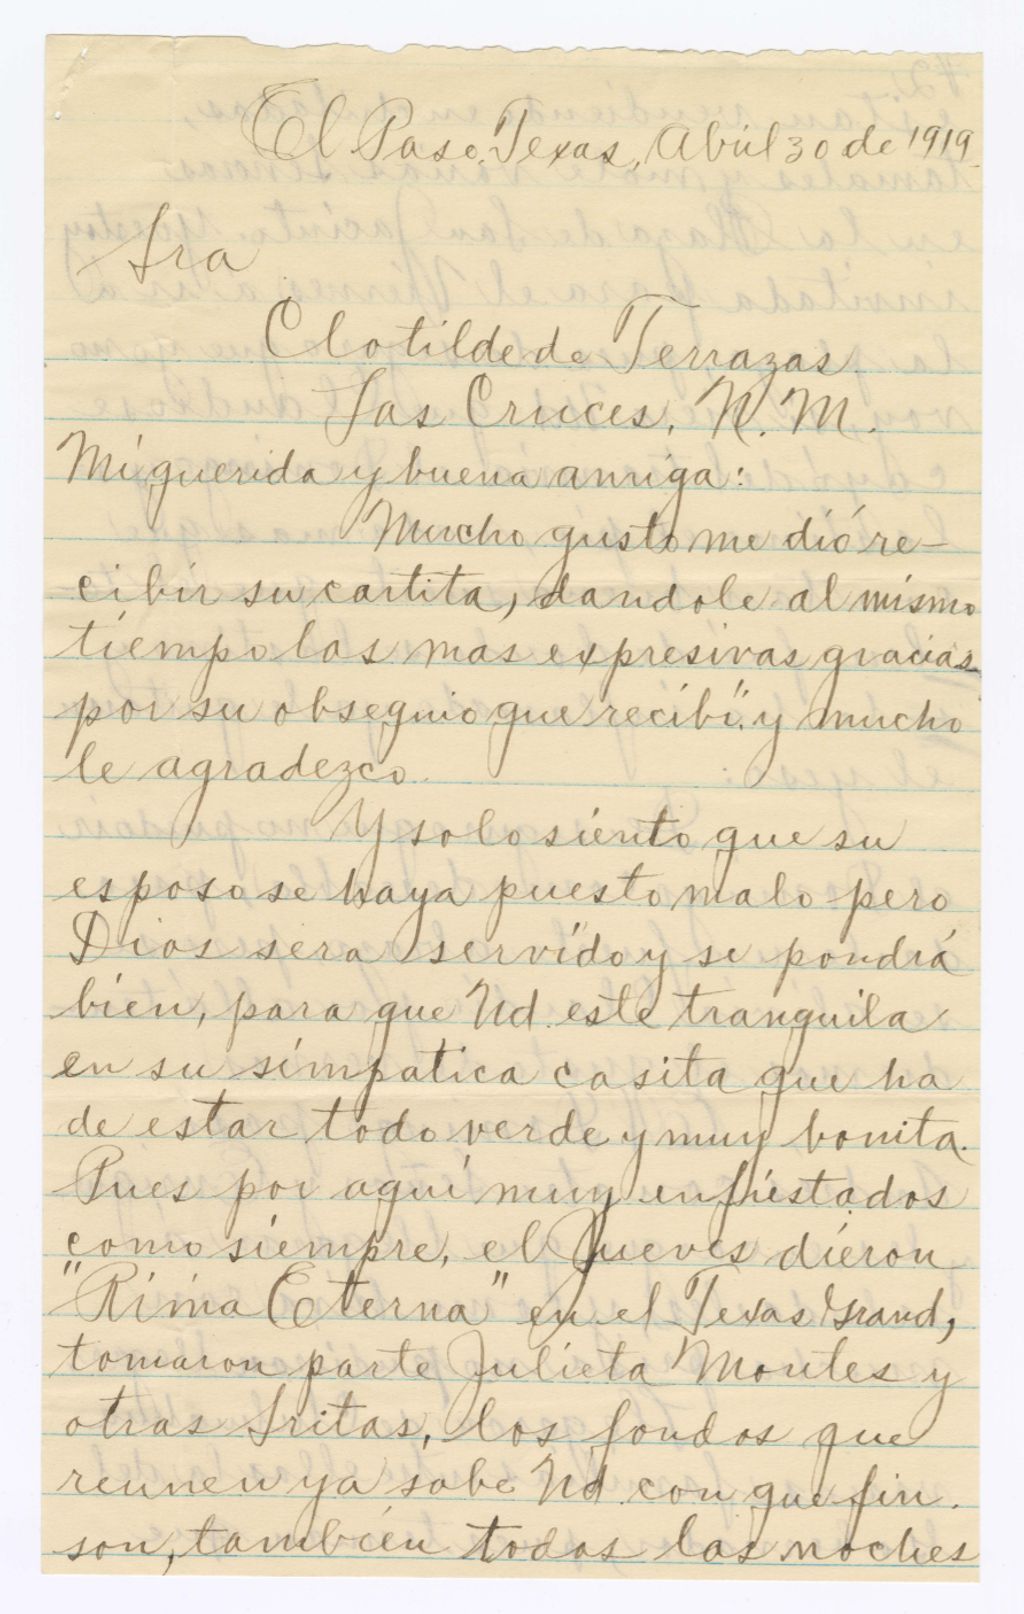 El Paso, Texas, Abril 30 de 1919
Sra
Clotilde de Terrazas.
Las Cruces, N. M.
Mi querida y buena amiga:
Mucho gusto me dió re-
cibir su cartita, dandole al mismo
tiempo las mas expresivas gracias
por su obsequio que recibi". y mucho
le agradezco.
Y solo siento que su
esposo se haya puesto malo pero
Dios sera servido y se pondrá
bien, para que Ud. este tranquila
en su simpatica casita que ha
de estar todo verde y muy bonita.
Pues por aquí muy enfiestados
como siempre, el Jueves dieron
"Rima Eterna" en el Texas Grand,
tomaron parte Julieta Montes y
otras Sritas, los fondos que
reunen ya sabe Ud. con que fin.
son, también todas las noches